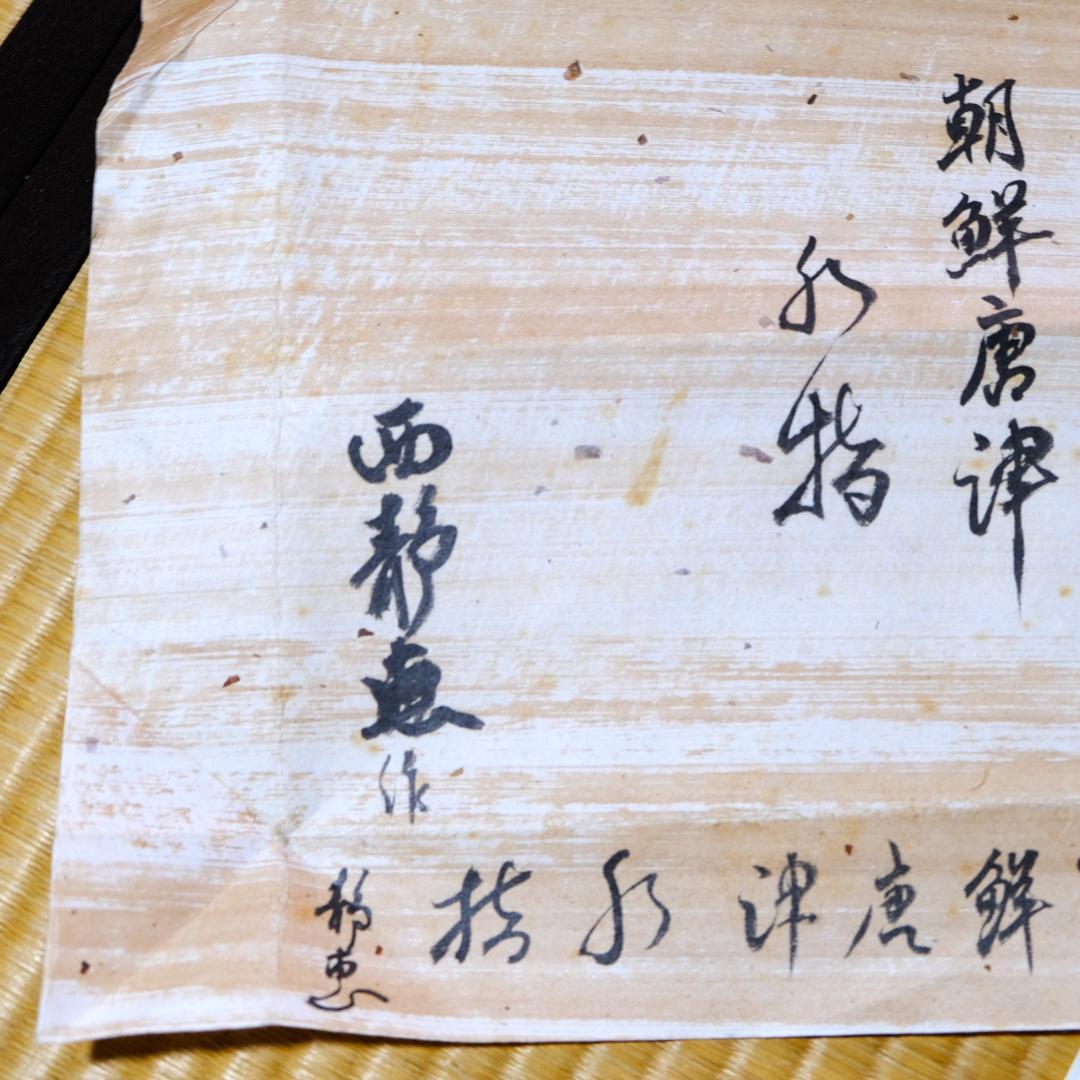 朝鮮唐津
水指
西静恵作
鮮唐津水指
静恵